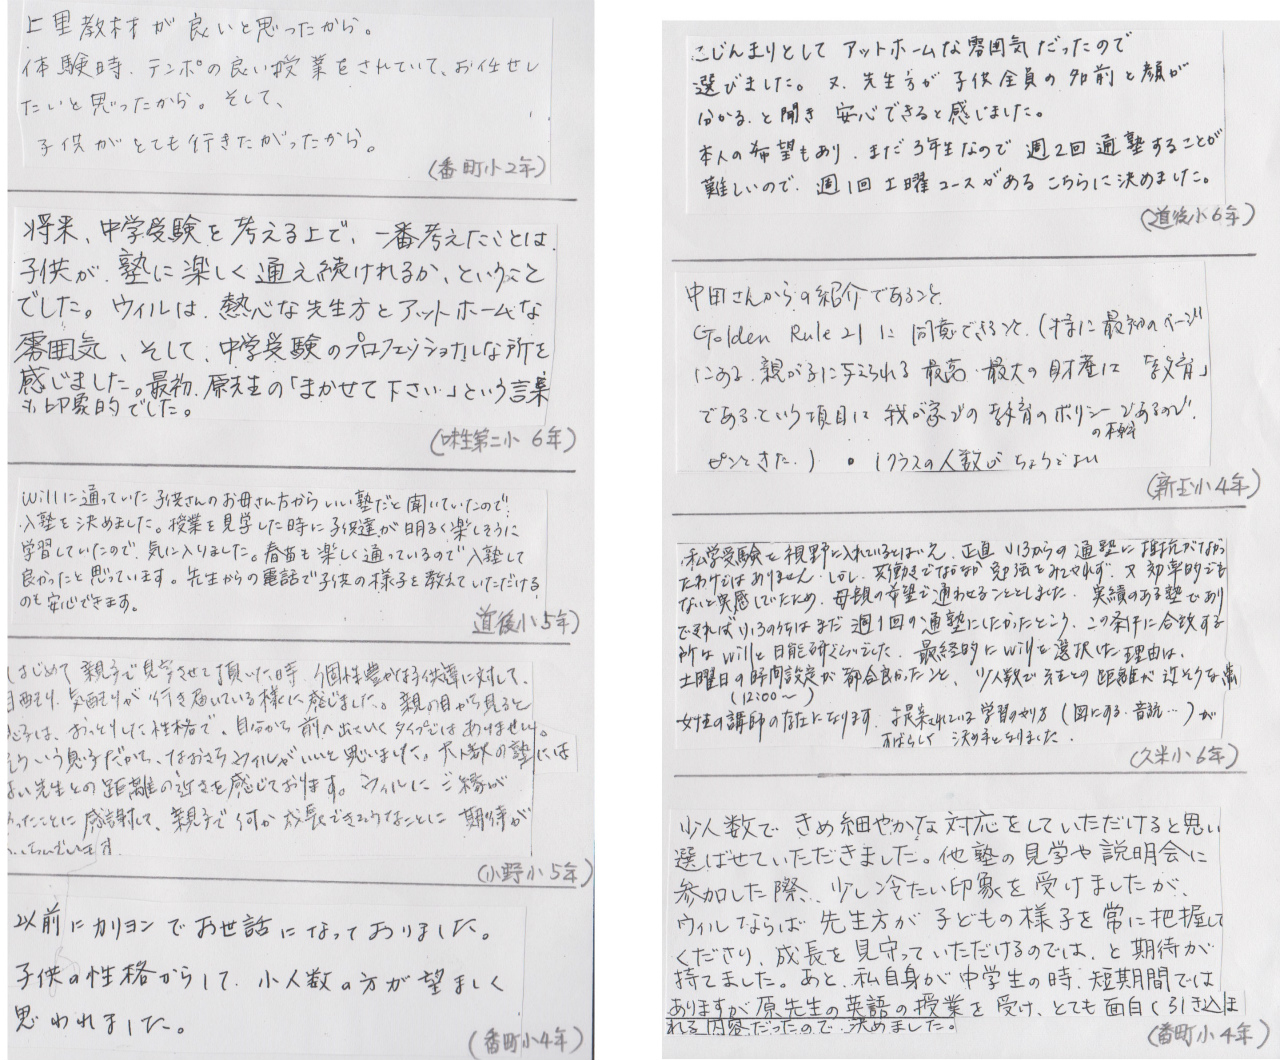 上里教材が良いと思ったから。
体験時、テンポの良い授業をされていて、お任せし
たいと思ったから。そして、
子供がとても行きたがったから。
(番町小2年)
将来、中学受験を考える上で、一番考えたことは、
子供が、塾に楽しく通え続けれるか、ということ
でした。ウィルは、熱心な先生方とアットホームな
雰囲気、そして、中学受験のプロフェッショナルな所を
感じました。最初、原先生の「まかせて下さい」という言葉
も印象的でした。
(味生第二小 6年)
Willに通っていた子供さんのお母さん方からいい塾だと聞いていたので、
入塾を決めました。授業を見学した時に子供達が明るく楽しそうに
学習していたので、気に入りました。春苗も楽しく通っているので入塾して
良かったと思っています。先生からの電話で子供の様子を教えていただける
のも安心できます。
道後小5年)
はじめて親子で見学させて頂いた時、個性豊かな子供達に対して、
目配り、気配りが行き届いている様に感じました。親の目から見ると
息子は、おっとりした性格で、自分から前へ出ていくタイプではありません。
そういう息子だから、なおさらウィルがいいと思いました。大人数の塾には
ない先生との距離の近さを感じております。ウィルにご縁が
あったことに感謝して、親子で何か成長できるようなことに期待が
(小野小5年)
以前にカリヨンでお世話になっておりました。
子供の性格からして、小人数の方が望ましく
思われました。
(番町小4年)
こじんまりとしてアットホームな雰囲気だったので
選びました。又、先生方が子供全員の名前と顔が
分かる、と聞き 安心できると感じました。
本人の希望もあり、まだ3年生なので週2回通塾することが
難しいので、週1回土曜コースがあるこちらに決めました。
(道後小6年)
中田さんからの紹介であること、
Golden Rule 21に同意できること、(特に最初のページ
にある、親が子に与えられる最高・最大の財産は「教育」
である、という項目は我が家での教育のポリシーであるので、
の根幹
ピンときた。) ・1クラスの人数がちょうどよい
(新玉小4年)
私学受験を視野に入れているとはいえ、正直小3からの通塾に抵抗がなかっ
たわけではありません。しかし、共働きでなかなか勉強をみてやれず、又効率的でも
ないと実感していたため、母親の希望で通わせることとしました。実績のある塾であり
できれば小3のうちはまだ週1回の通塾にしたかったところ、この条件に合致する
所はwillと日能研くらいでした。最終的にwillを選択した理由は、
土曜日の時間設定が都合良かったこと、少人数で先生との距離が近そうな点
(12:00〜)
女性の講師の存在になります。提案されている学習のやり方(図にする・音読…)が
すばらしく 決め手となりました。
(久米小6年)
少人数できめ細やかな対応をしていただけると思い
選ばせていただきました。他塾の見学や説明会に
参加した際、少し冷たい印象を受けましたが、
ウィルならば先生方が子どもの様子を常に把握して
くださり、成長を見守っていただけるのでは、と期待が
持てました。あと、私自身が中学生の時、短期間では
ありますが原先生の英語の授業を受け、とても面白く引き込ま
れる内容だったので決めました。
(番町小4年)